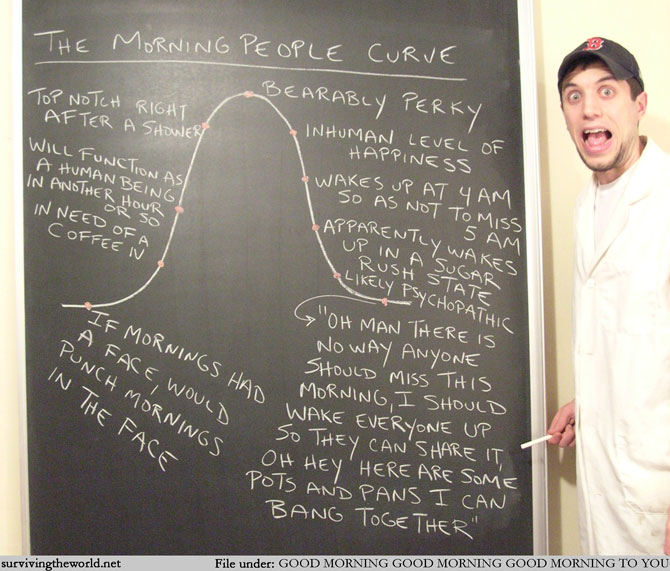 THE MORNING PEOPLE CURVE
TOP NOTCH RIGHT
AFTER A SHOWER
WILL FUNCTION AS
A HUMAN BEING
IN ANOTHER HOUR
OR SO
IN NEED OF A
COFFEE IV
IF MORNINGS HAD
A FACE, WOULD
PUNCH MORNINGS
IN THE FACE
BEARABLY PERKY
INHUMAN LEVEL OF
HAPPINESS
WAKES UP AT 4 AM
SO AS NOT TO MISS
5 AM
APPARENTLY WAKES
UP IN A SUGAR
RUSH STATE
LIKELY PSYCHOPATHIC
"OH MAN THERE IS
NO WAY ANYONE
SHOULD MISS THIS
MORNING, I SHOULD
WAKE EVERYONE UP
SO THEY CAN SHARE IT,
OH HEY HERE ARE SOME
POTS AND PANS I CAN
BANG TOGETHER"
B
survivingtheworld.net
File under: GOOD MORNING GOOD MORNING GOOD MORNING TO YOU